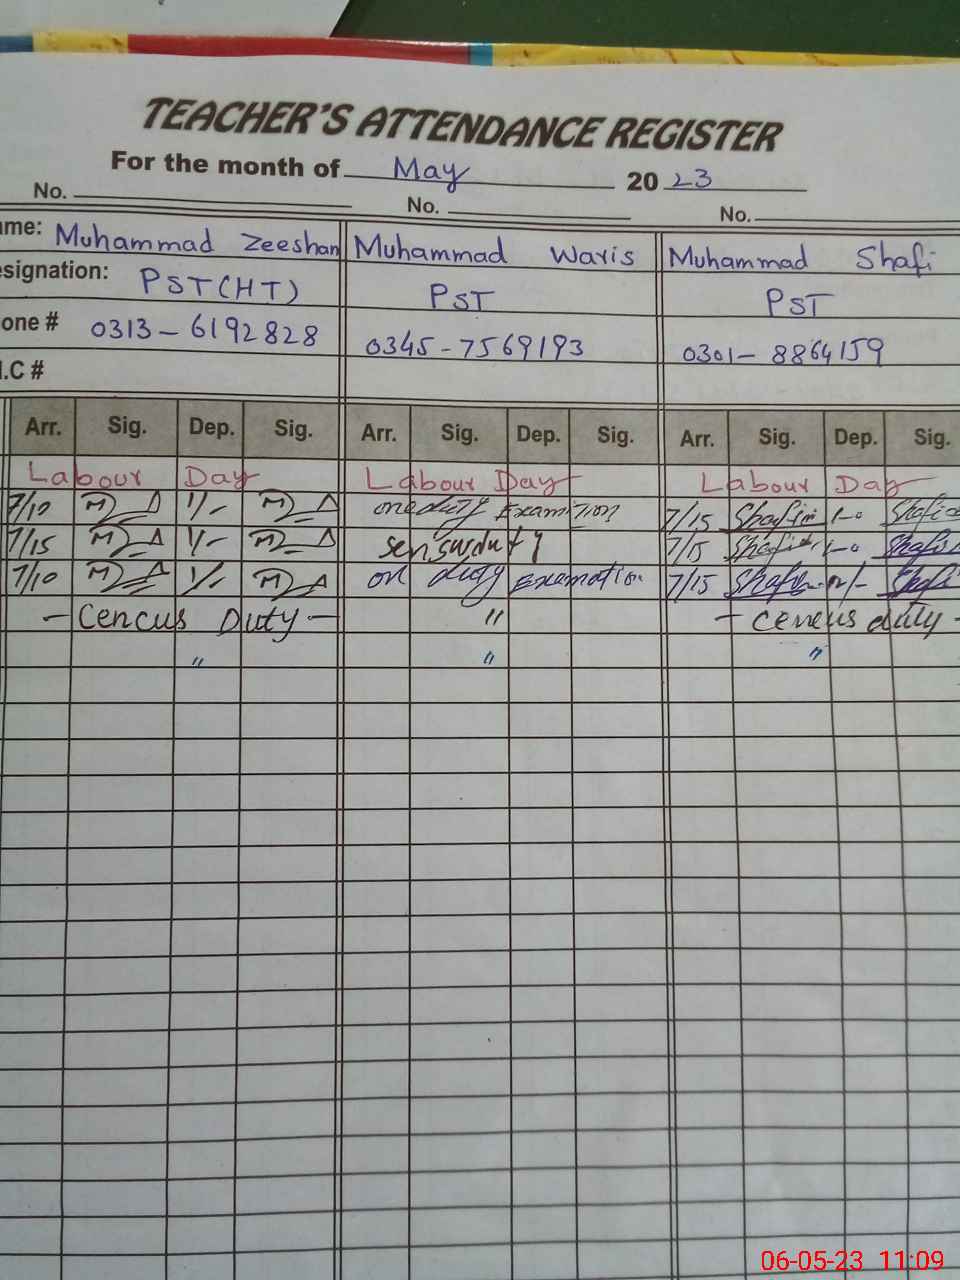 TEACHER'S ATTENDANCE REGISTER
For the month of May 2023
No. No. No.
ame: Muhammad Zeeshan Muhammad Waris Muhammad Shafi
esignation: PST(HT) PST PST
one # 0313-6192828 0345-7569193 0301-8864159
I.C #
Arr. Sig. Dep. Sig. Arr. Sig. Dep. Sig. Arr. Sig. Dep. Sig.
Labour Day Labour Day Labour Day
7/10 1/- 7/15
7/15 1/- sensusduty 7/15
7/10 1/- on duty Examotion 7/15
- Cencus Duty - " - cencus duty -
" " "
06-05-23 11:09